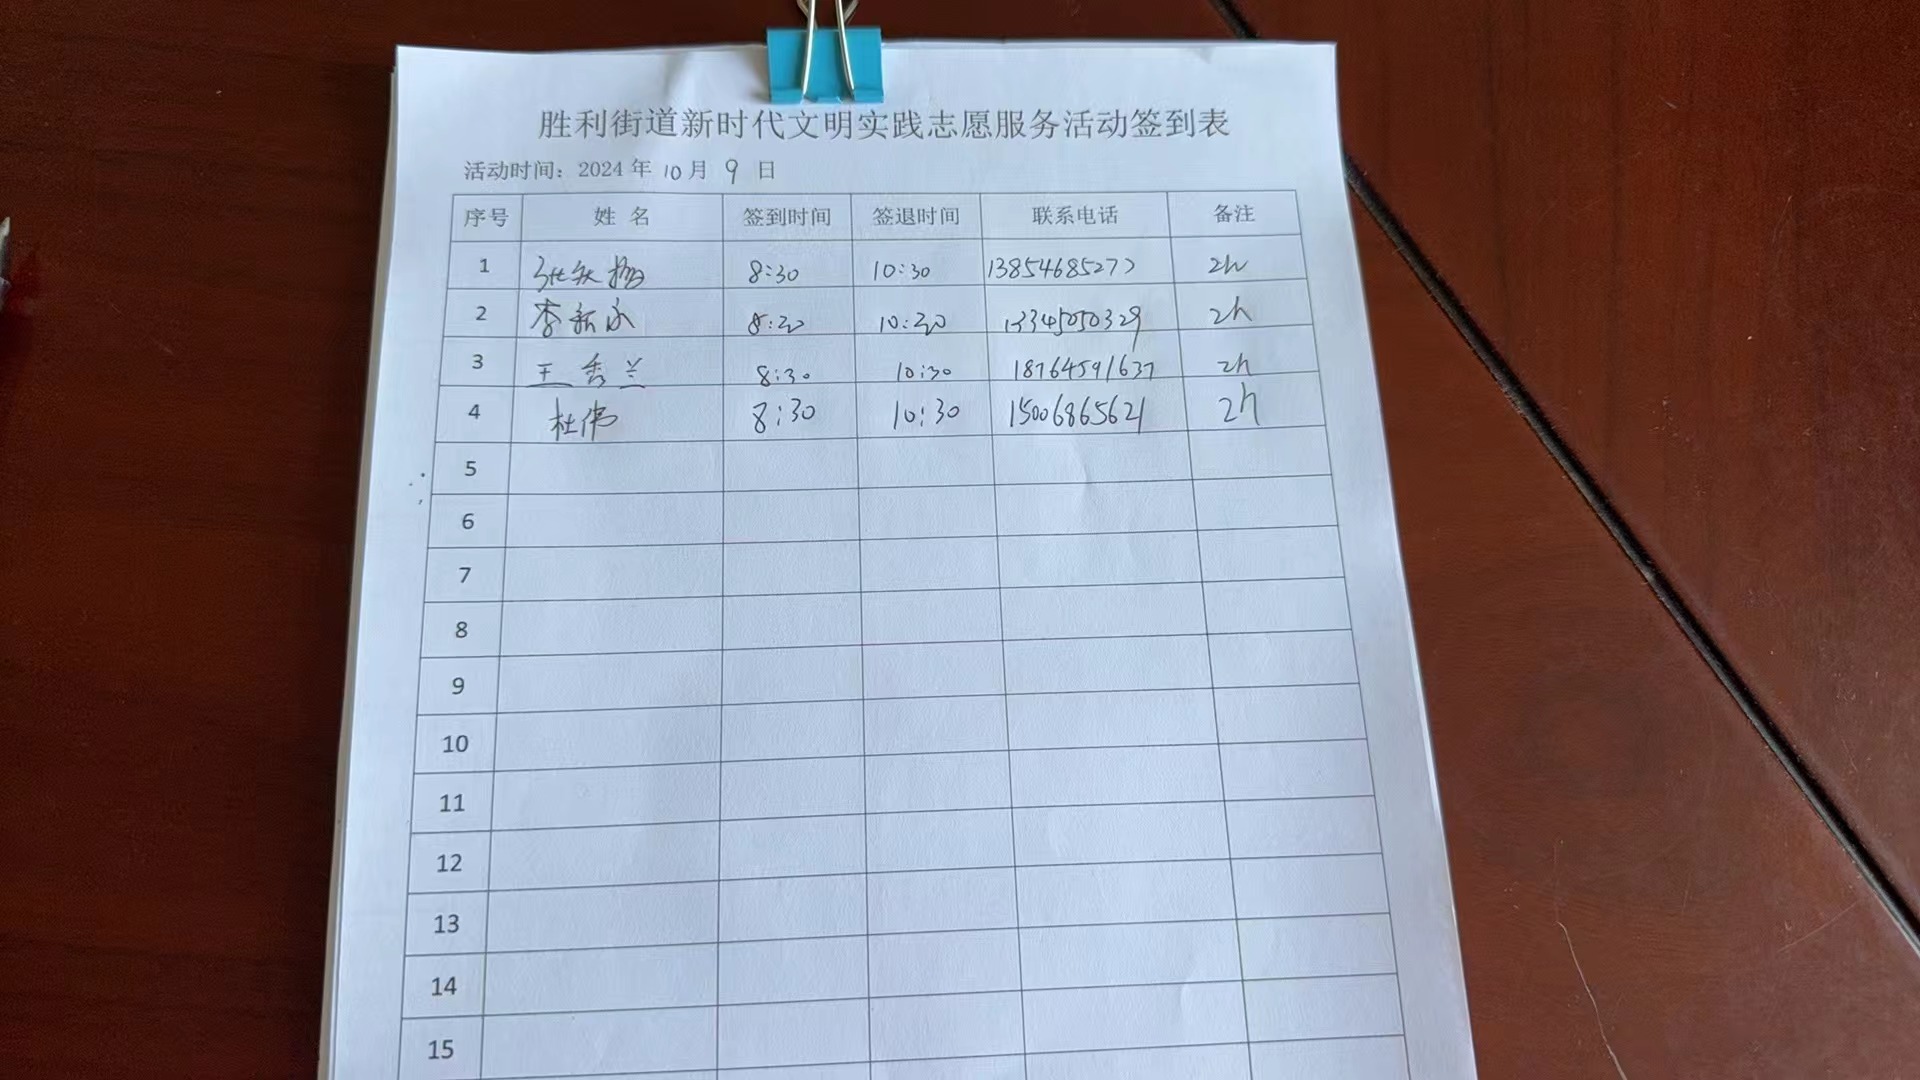 胜利街道新时代文明实践志愿服务活动签到表
活动时间：2024 年 10 月 9 日
序号 姓 名 签到时间 签退时间 联系电话 备注
1 8:30 10:30 13854685277 2h
2 李新永 8:30 10:30 13345050329 2h
3 王秀兰 8:30 10:30 18764591637 2h
4 杜伟 8:30 10:30 15006865621 2h
5
6
7
8
9
10
11
12
13
14
15